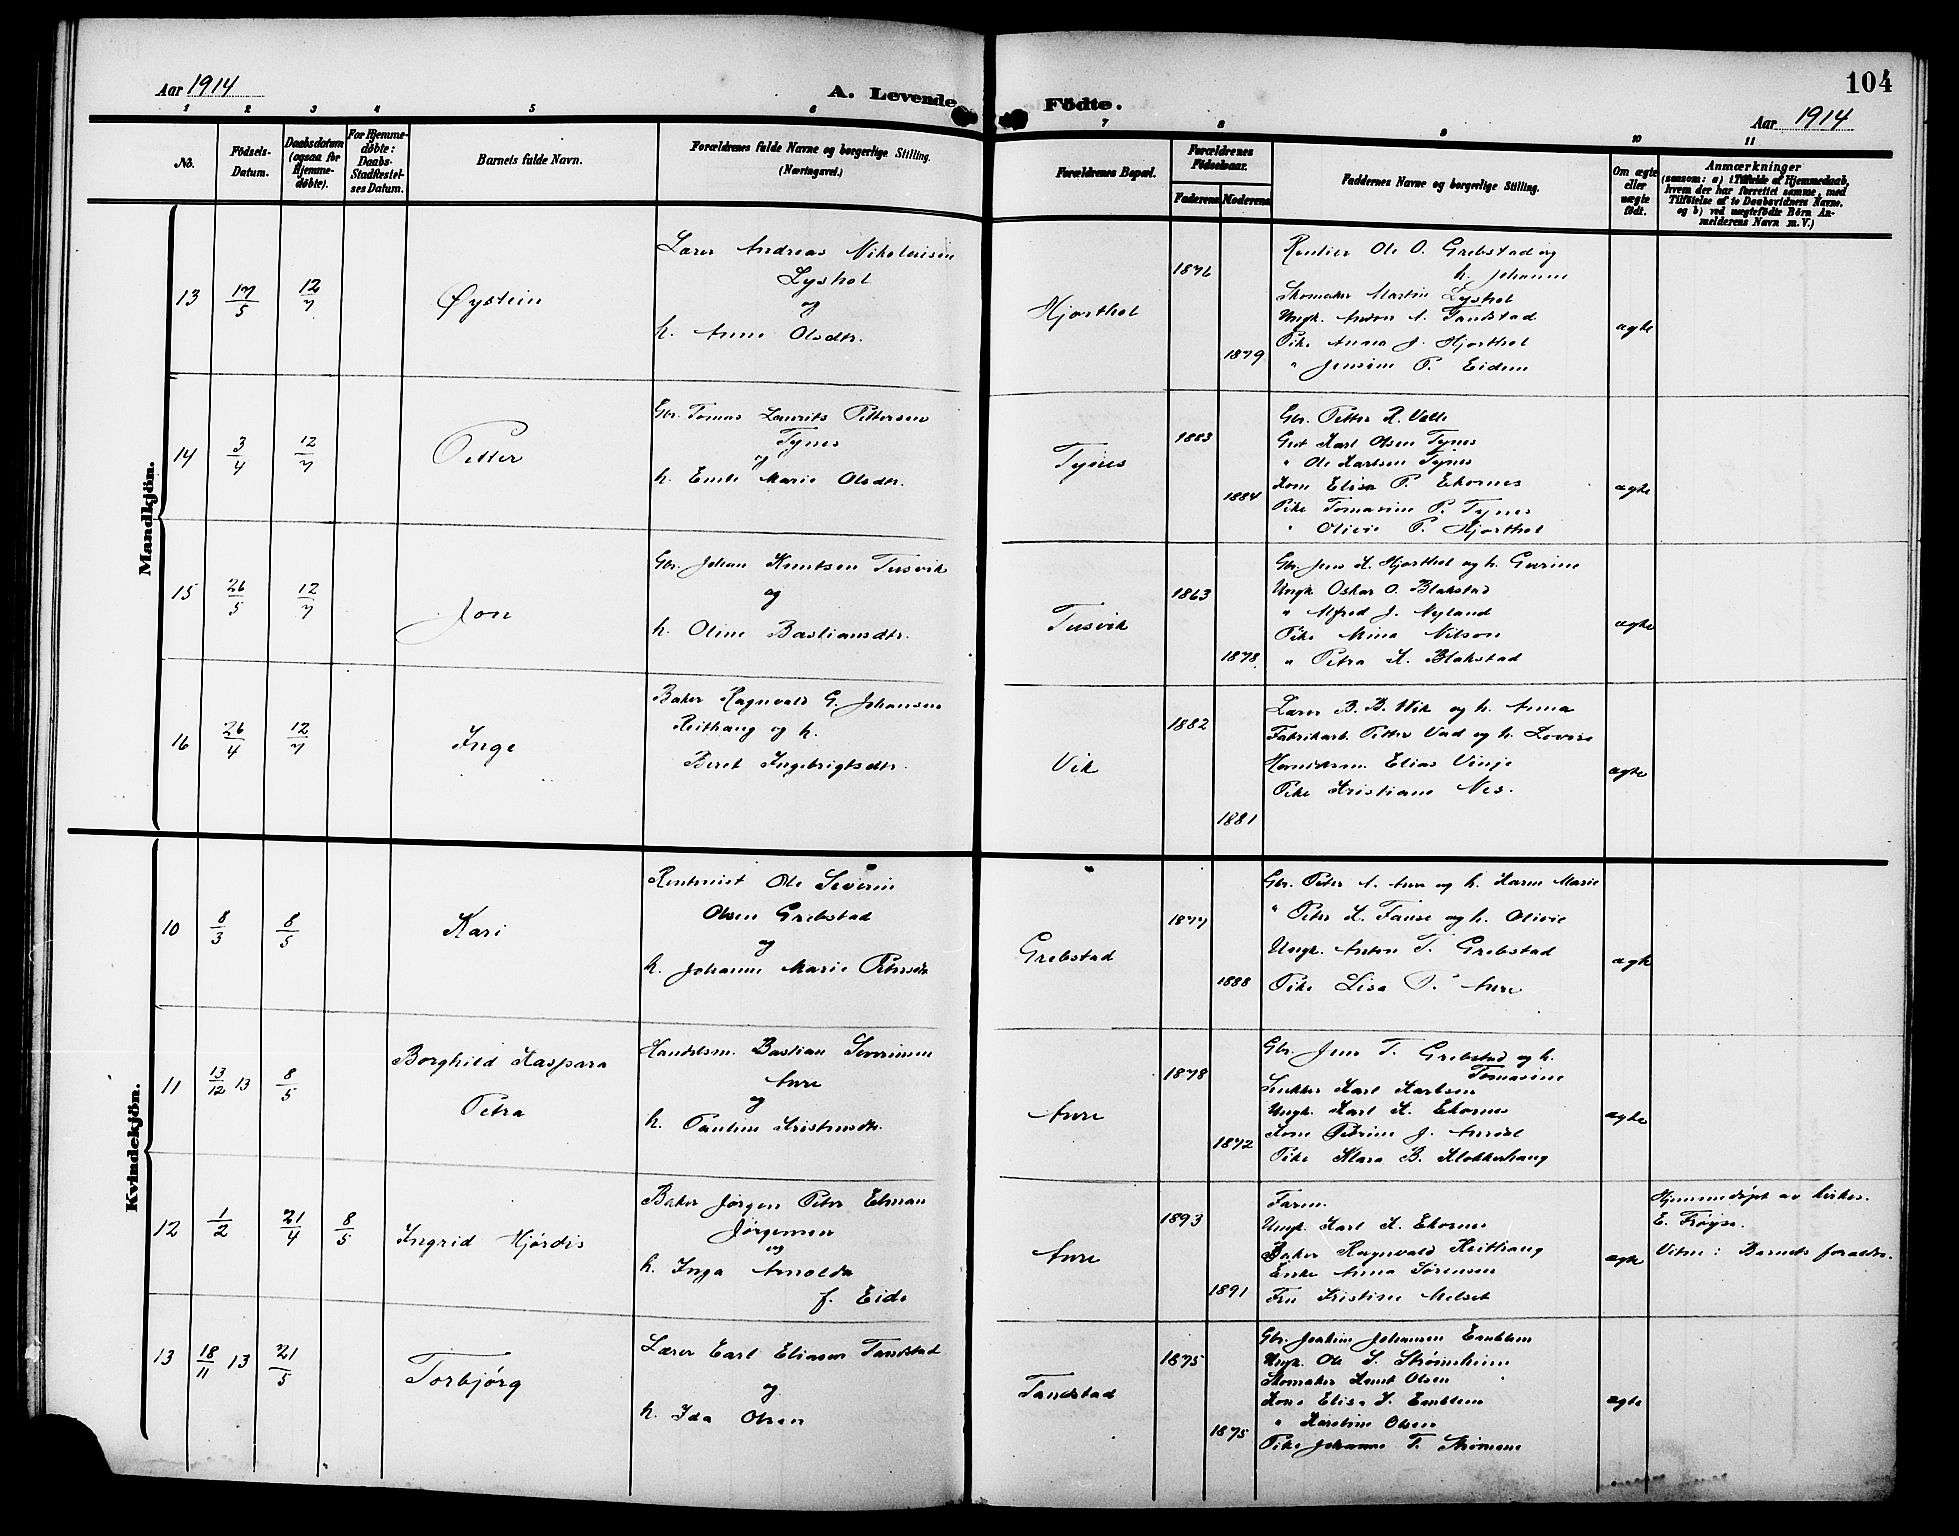 104
Aar 1914
A. Levende Födte.
Aar 1914
1 2 3 4 5 6 7 8 9 10 11
No.
Födsels-
Datum.
Daabsdatum
(ogsaa for
Hjemme-
döbte).
For Hjemme-
döbte:
Daabs-
Stadfæstel-
ses Datum.
Barnets fulde Navn.
Forældrenes fulde Navne og borgerlige Stilling.
(Næringsvei.)
Forældrenes Bopæl.
Forældrenes
Födselsaar.
Faderens
Moderens
Faddernes Navne og borgerlige Stilling.
Om ægte
eller
uægte
født.
Anmærkninger
(saasom: a) i Tilfælde af Hjemmedaab,
hvem der har forrettet samme, med
Tilföielse af to Daabsvidners Navne.
og b) ved uægtefödte Börn An-
melderens Navn m. V.)
Mandkjön.
13 17/5 12/7
Øystein
Lærer Andreas Nikolaisen
Lyshol
og
h. Anne Olsdtr.
Hjorthol
1876
1879
Rentier Ole O. Grebstad og
h. Johanne
Skomaker Martin Lyshol
Ungk. Anton A. Tandstad
Pike Anna J. Hjorthol
" Jensine P. Eidem
ægte
14 3/4 12/7
Petter
Gbr. Tomas Laurits Pettersen
Tynes
og
h. Emile Marie Olsdtr.
Tynes
1883
1884
Gbr. Petter R. Valle
Gut Karl Olsen Tynes
" Ole Karlsen Tynes
Kone Elisa P. Ekornes
Pike Tomasine P. Tynes
" Olivie P. Hjorthol
ægte
15 26/5 12/7
Jon
Gbr. Johan Knutsen Tusvik
og
h. Oline Bastiansdtr.
Tusvik
1863
1878.
Gbr. Jens K. Hjorthol og h. Gurine
Ungk Oskar O. Blakstad
" Alfred J. Nyland
Pike Mina Nilsen
" Petra K. Blakstad
ægte
16 26/4 12/7
Inge
Baker Ragnvald G. Johansen
Reithaug og h.
Beret Ingebrigtsdtr.
Vik
1882
1881
Lærer B. B. Wik og h. Anna
Fabrikarb. Petter Vad og h. Lovise
Elias Vinje
Pike Kristiane Nes.
ægte
Kvindekjön.
10 8/3 8/5
Kari
Repternist Ole Severin
Olsen Grebstad
og
h. Johanne Marie Petersdtr
Grebstad
1877
1888
Gbr. Peter A. Aure og h. Karen Marie
" Peter K. Fauske og h. Olivie
Ungk. Anton T. Grebstad
Pike Lisa P. Aure
ægte
11 13/12 13 8/5
Borghild Kaspara
Petra
Handelsm. Bastian Severinsen
Aure
og
h. Pauline Kristensdtr.
Aure
1878
1872
Gbr. Jens T. Grebstad og h.
Tomasine
Snekker Karl Karlsen
Ungk. Karl K. Ekornes
Kone Petrine J. Aurdal
Pike Klara B. Klokkerhaug
ægte
12 1/2 21/4 8/5
Ingrid Hjørdis
Baker Jørgen Peter Elman
Jørgensen
og
h. Inga Arnolda
f. Eide
Aure
1893
1891
Faren.
Ungk. Karl K. Ekornes
Baker Ragnvald Reithaug
Enke Anna Sørensen
Fru Kristine Melset
ægte
Hjemmedøpt av kirkes.
E. Frøysa.
Vitne: Barnets foreldre.
13 18/11 13 21/5
Torbjørg
Lærer Carl Eliasen Tandstad
og
h. Ida Olsen
Tandstad
1875
1875
Gbr. Joakim Johansen Emblem
Ungk. Ole S. Strømsheim
Skomaker Knut Olsen
Kone Elisa J. Emblem
" Karoline Olsen
Pike Johanne T. Strømme
ægte